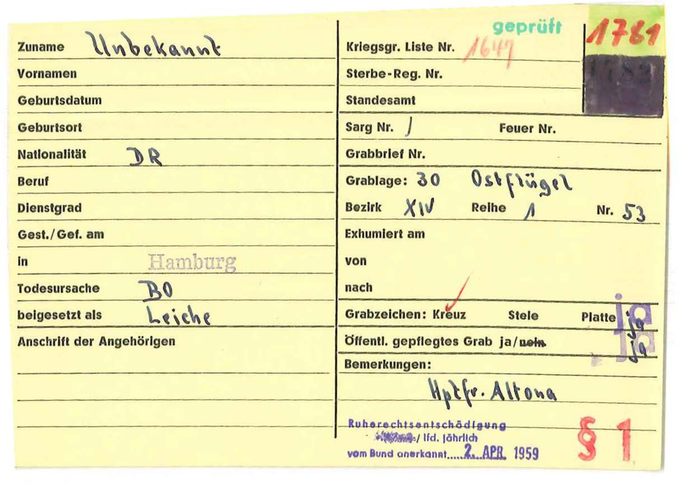 geprüft
1781
Zuname Unbekannt
Vornamen
Geburtsdatum
Geburtsort
Nationalität DR
Beruf
Dienstgrad
Gest./Gef. am
in Hamburg
Todesursache BO
beigesetzt als Leiche
Anschrift der Angehörigen
Kriegsgr. Liste Nr. 1647
Sterbe-Reg. Nr.
Standesamt
Sarg Nr. / Feuer Nr.
Grabbrief Nr.
Grablage: 30 Ostflügel
Bezirk XIV Reihe 1 Nr. 53
Exhumiert am
von
nach
Grabzeichen: Kreuz Stele Platte ja
Öffentl. gepflegtes Grab ja/nein ja
Bemerkungen:
Hptfr. Altona
Ruherechtsentschädigung
/ lfd. jährlich
vom Bund anerkannt 2. APR. 1959
§ 1